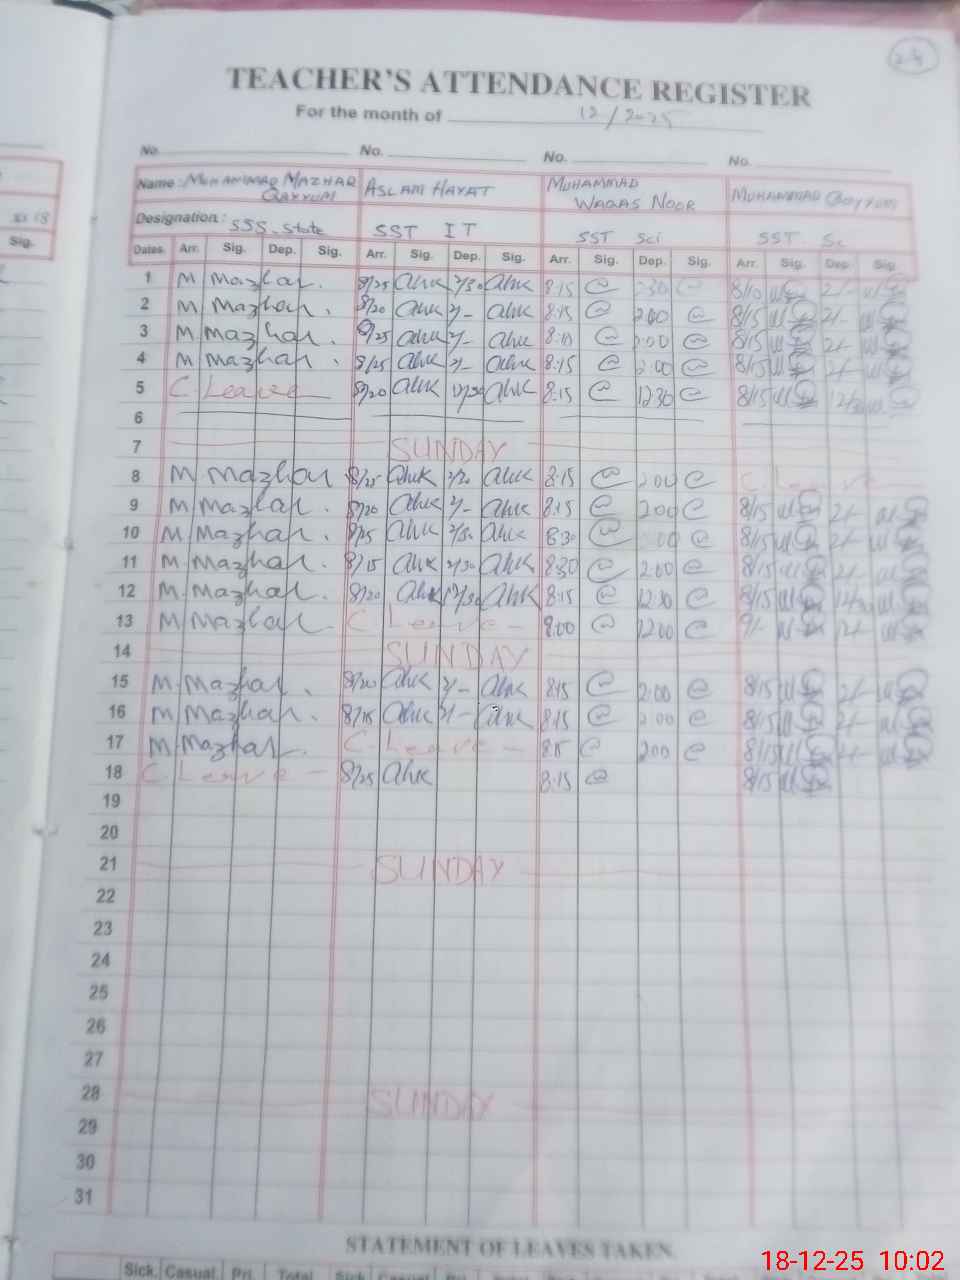 24
TEACHER'S ATTENDANCE REGISTER
For the month of 12/2025
No. No. No. No.
Name: MUHAMMAD MAZHAR QAYYUM ASLAM HAYAT MUHAMMAD WAQAS NOOR MUHAMMAD QAYYUM
Designation: SSS. State SST IT SST Sci SST. Sc
Dates. Arr. Sig. Dep. Sig. Arr. Sig. Dep. Sig. Arr. Sig. Dep. Sig. Arr. Sig. Dep. Sig.
Sig.
1 M Mazhar. 8/25 2/30 8:15 @ 230 @ 8/10 2/-
2 M Mazhar. 8/20 2/- 8:15 @ 200 @ 8/15 2/-
3 M Mazhar. 8/25 2/- 8:10 @ 2:00 @ 8/15 2/-
4 M Mazhar. 8/25 2/- 8:15 @ 2:00 @ 8/15 2/-
5 C Leave 8/20 12/30 8:15 @ 1230 @ 8/15 12/30
6
7 SUNDAY
8 M Mazhar 8/25 2/20 8:15 @ 200 @ C. Leave
9 M Mazhar. 8/20 2/- 8:15 @ 200 @ 8/15 2/-
10 M Mazhar. 8/25 2/30 8:30 @ 00 @ 8/15 2/-
11 M Mazhar. 8/15 2/30 8:30 @ 2:00 @ 8/15 2/-
12 M Mazhar. 8/20 12/30 8:15 @ 12:30 @ 8/15
13 M Mazhar C. Leave - 8:00 @ 1200 @ 9/- 12/-
14 SUNDAY
15 M Mazhar. 8/20 2/- 8:15 @ 2:00 @ 8/15 2/-
16 M Mazhar. 8/15 2/- 8:15 @ 200 @ 8/15 2/-
17 M Mazhar. C. Leave - 8:15 @ 200 @ 8/15 2/-
18 C. Leave - 8/25 8:15 @ 8/15
19
20
21 SUNDAY
22
23
24
25
26
27
28 SUNDAY
29
30
31
STATEMENT OF LEAVES TAKEN
Sick. Casual Pri. Total Sick. Casual
18-12-25 10:02